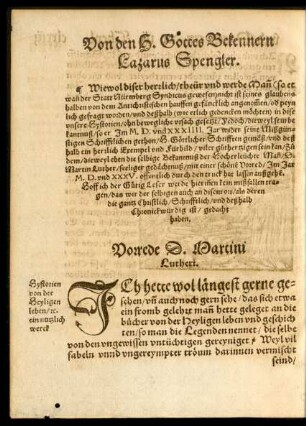 Von den H. Gottes Bekennern
Lazarus Spengler.
¶ Wiewol diser herrlich/ theür vnd werde Mañ/ (so et-
wañ der Statt Nürmberg Syndicus gewesen) nicht eß seines glaubens
halben von dem Antichristischen hauffen gefänklich angenomen/ od peyn
lich gefragt worden/ vnd deßhalb (wie etlich gedencken möchten) in diß
vnsere Hystorien/ ohn bewegliche vrsach gesetzt/ Jedoch/ dieweyl seine be
kantnuß/ so er Jm M. D. vnd XXXIIII. Jar wider seine Mißgünn
stigen Schrifftlichen gethon/ H. Göttlicher Schrifften gemäß/ vnd deß
halb ein herrlich Exempel vnd Fürbild/ viler gůthertzigen sein kan/ Zů
dem/ dieweyl eben die selbige Bekantnuß der Hocherleichte Mañ/ D.
Martin Luther/ seeliger gedächtnuß/ mit einer schöne Vorred/ Jm Jar
M. D. vnd XXXV. offentlich durch den truck hat lassen außgehē.
Hoff ich der Gütig Leser werde hierinn kein mißfallen tra-
gen/ das wir der selbigen auch an disem ort/ als deren
die gantz Christlich/ Schrifftlich/ vnd deßhalb
Chronick wirdig ist/ gedacht
haben.
Vorrede D. Martini
Lutheri.
Hystorien
von der
Heyligen
leben/ ꝛc.
ein nutzlich
werck
Jch hette wol längest gerne ge-
sehen/ vñ auch noch gern sehe/ das sich etwa
ein fromb gelehrt man hette geleget an die
bücher von der Heyligen leben vnd geschich
ten/ so man die Legenden nennet/ die selbe
von den vngewissen vntüchtigen gereyniget/ Weyl vil
fabeln vnnd vngereympter träum darinnen vermischt
seind/